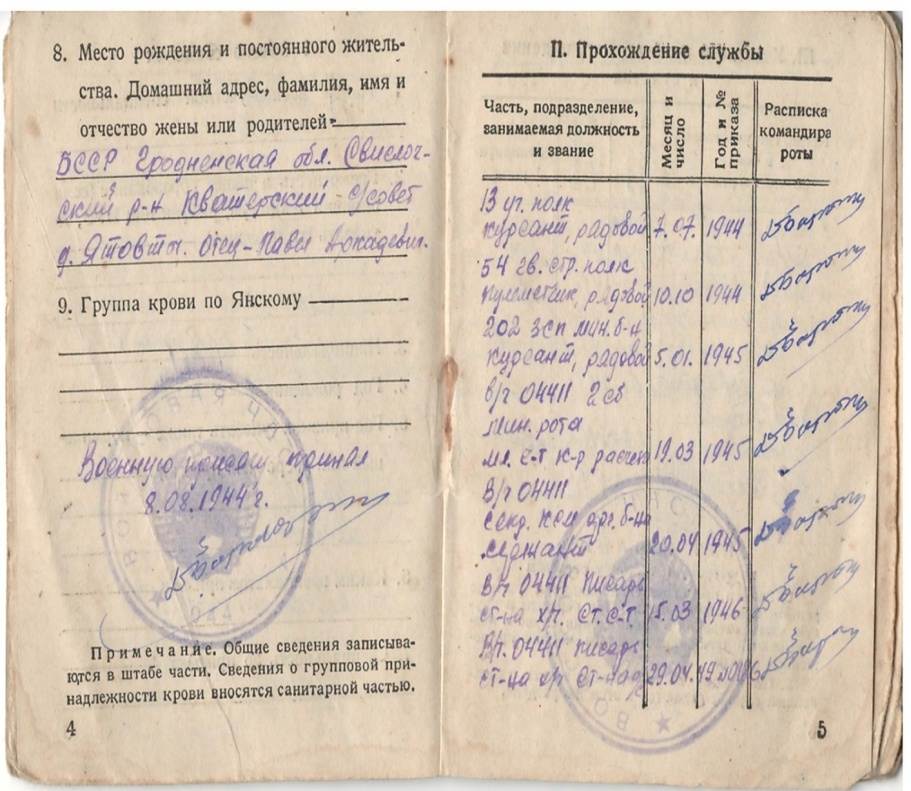 8. Место рождения и постоянного житель-
ства. Домашний адрес, фамилия, имя и
отчество жены или родителей
БССР Гродненская обл. Свислоч-
ский р-н Кватерский с/совет
д. Ятовты. Отец - Павел Аркадевич.
9. Группа крови по Янскому
Военную присягу принял
8.08.1944 г.
944
Примечание. Общие сведения записыва-
ются в штабе части. Сведения о групповой при-
надлежности крови вносятся санитарной частью.
4
П. Прохождение службы
Часть, подразделение,
занимаемая должность
и звание
Месяц и
число
Год и №
приказа
Расписка
командира
роты
13 уч. полк
курсант, рядовой 7.07. 1944
54 гв. стр. полк
пулеметчик, рядовой 10.10 1944
202 зсп мин. б-н
курсант, рядовой 5.01. 1945
в/ч 04411 2 сб
мин. рота
мл. с-т к-р расчета 19.03 1945
В/ч 04411
секр. ксм орг. б-на
сержант 20.04 1945
В/ч 04411 писарь
ст-на х/ч. ст. с-т. 15.03 1946
В/ч. 04411 писарь
29.04.
5